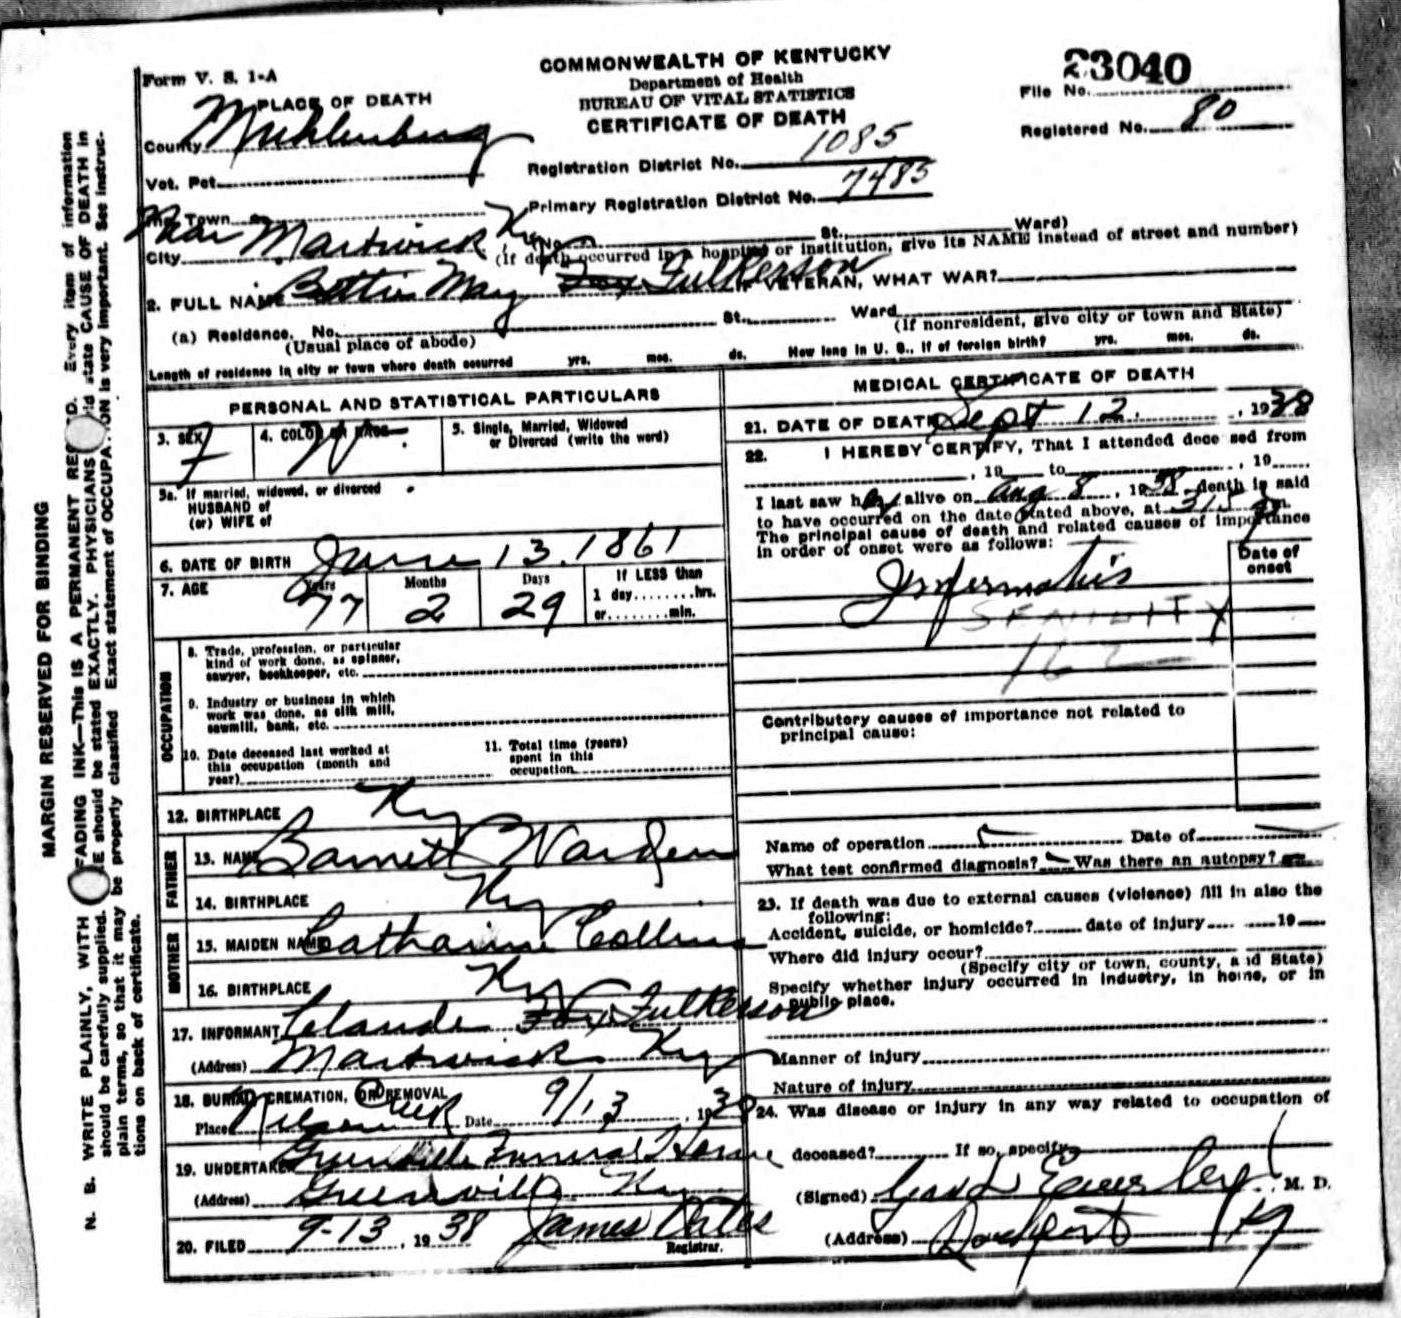 Form V. S. 1-A
COMMONWEALTH OF KENTUCKY
Department of Health
BUREAU OF VITAL STATISTICS
CERTIFICATE OF DEATH
23040
File No.
Registered No. 80
PLACE OF DEATH
County Muhlenburg
Registration District No. 1085
Vot. Pct.
Primary Registration District No. 7485
Inc. Town
City Near Martwick Ky (No. St., Ward)
(If death occurred in a hospital or institution, give its NAME instead of street and number)
2. FULL NAME Bettie May Fox Fulkerson IF VETERAN, WHAT WAR?
(a) Residence. No. St., Ward
(Usual place of abode) (If nonresident, give city or town and State)
Length of residence in city or town where death occurred yrs. mos. ds. How long in U. S., if of foreign birth? yrs. mos. ds.
PERSONAL AND STATISTICAL PARTICULARS
3. SEX F 4. COLOR OR RACE W. 5. Single, Married, Widowed
or Divorced (write the word)
5a. If married, widowed, or divorced
HUSBAND of
(or) WIFE of
6. DATE OF BIRTH June 13. 1861
7. AGE Years 77 Months 2 Days 29 If LESS than
1 day........hrs.
or........min.
OCCUPATION
8. Trade, profession, or particular
kind of work done, as spinner,
sawyer, bookkeeper, etc.
9. Industry or business in which
work was done, as silk mill,
sawmill, bank, etc.
10. Date deceased last worked at
this occupation (month and
year)
11. Total time (years)
spent in this
occupation
12. BIRTHPLACE Ky
FATHER
13. NAME Barnett Warden
14. BIRTHPLACE Ky
MOTHER
15. MAIDEN NAME Catharine Collins
16. BIRTHPLACE Ky
17. INFORMANT Claude Fox Fulkerson
(Address) Martwick Ky
18. BURIAL, CREMATION, OR REMOVAL
Place Nelson Creek Date 9/13, 1938
19. UNDERTAKER Greenville Funeral Home
(Address) Greenville Ky
20. FILED 9-13, 1938 James Oates
Registrar.
MEDICAL CERTIFICATE OF DEATH
21. DATE OF DEATH Sept 12., 1938
22. I HEREBY CERTIFY, That I attended deceased from
, 19 to , 19
I last saw her alive on Aug 8, 1938, death is said
to have occurred on the date stated above, at 315 Pm.
The principal cause of death and related causes of importance
in order of onset were as follows:
Date of
onset
SENILITY
162
Contributory causes of importance not related to
principal cause:
Name of operation Date of
What test confirmed diagnosis? Was there an autopsy?
23. If death was due to external causes (violence) fill in also the
following:
Accident, suicide, or homicide? date of injury 19
Where did injury occur?
(Specify city or town, county, and State)
Specify whether injury occurred in industry, in home, or in
public place.
Manner of injury
Nature of injury
24. Was disease or injury in any way related to occupation of
deceased? If so, specify
(Signed) M. D.
(Address) Rockport Ky
MARGIN RESERVED FOR BINDING
N. B. WRITE PLAINLY, WITH UNFADING INK—This IS A PERMANENT RECORD. Every item of information
should be carefully supplied. AGE should be stated EXACTLY. PHYSICIANS should state CAUSE OF DEATH in
plain terms, so that it may be properly classified. Exact statement of OCCUPATION is very important. See instruc-
tions on back of certificate.